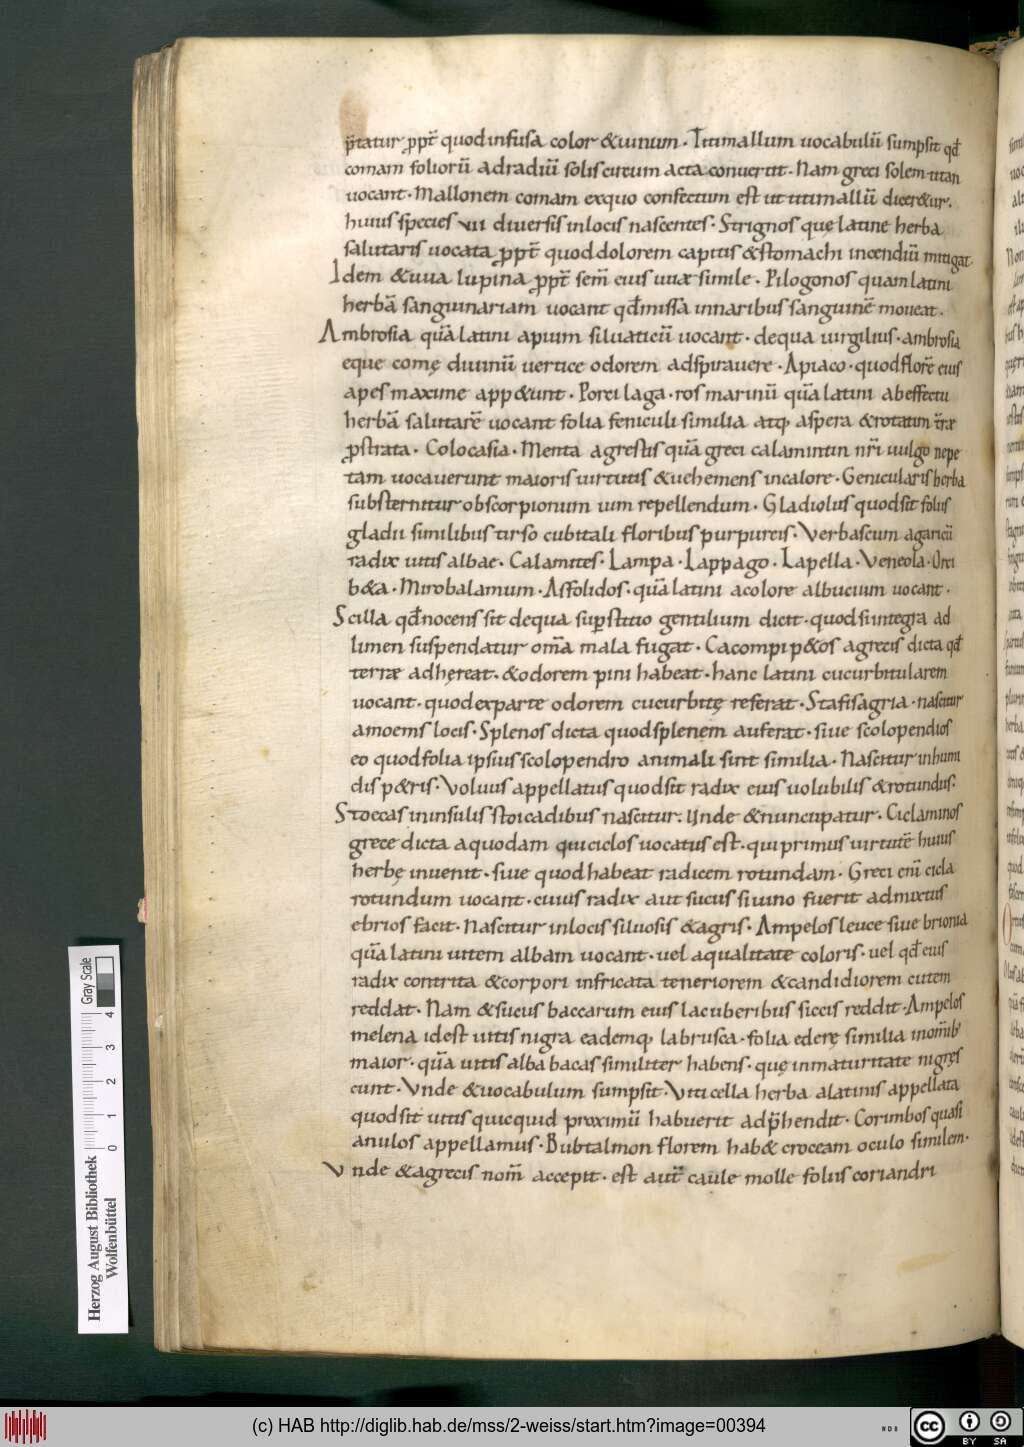 p̄tatur ꝓpt̄ quod infusa color & uinum · Titimallum uocabulū sumpsit qđ
comam foliorū ad radiū solis circum acta conuertit · Nam greci solem titan
uocant · Mallonem comam ex quo confectum est ut titimallū dicer&ur ·
huius species vii diuersis in locis nascentes · Strignos quę latine herba
salutaris uocata ꝓpt̄ quod dolorem capitis & stomachi incendiū mitigat ·
Idem & uua lupina ꝓpt̄ sem̄ eius uuæ simile · Pilogonos quam latini
herbā sanguinariam uocant qđ missa in naribus sanguinē moueat ·
Ambrosia quā latini apium siluaticū uocant · de qua uirgilius · ambrosia
eque comę diuinū uertice odorem adspirauere · Apiaco · quod florē eius
apes maxime app&unt · Porei laga · ros marinū quā latini ab effectu
herbā salutarē uocant folia feniculi similia atq; aspera & rotatim t̄ræ
ꝓstrata · Colocasia · Menta agrestis quā greci calamintin nr̄i uulgo nepe
tam uocauerunt maioris uirtutis & uehemens in calore · Genicularis herba
substernitur ob scorpionum uim repellendum · Gladiolus quod sit foliis
gladii similibus tirso cubitali floribus purpureis · Verbascum agaricū
radix uitis albae · Calamites · Lampa · Lappago · Lapella · Veneola · Orci
b&a · Mirobalamum · Asfolidos · quā latini a colore albucium uocant ·
Scilla qđ nocens sit de qua sup̄stitio gentilium dicit · quod si integra ad
limen suspendatur om̄a mala fugat · Cacompip&os a grecis dicta qđ
terræ adhęreat · & odorem pini habeat · hanc latini cucurbitularem
uocant · quod ex parte odorem cucurbitę referat · Stafisagria · nascitur
amoenis locis · Splenos dicta quod splenem auferat · siue scolopendios
eo quod folia ipsius scolopendro animali sint similia · Nascitur in humi
dis p&ris · Voluus appellatus quod sit radix eius uolubilis & rotundus ·
Stoecas in insulis stoicadibus nascitur · Unde & nuncupatur · Ciclaminos
grece dicta a quodam qui ciclos uocatus est · qui primus uirtutē huius
herbę inuenit · siue quod habeat radicem rotundam · Greci enī cicla
rotundum uocant · cuius radix aut sucus si uino fuerit admixtus
ebrios facit · Nascitur in locis siluosis & agris · Ampelos leuce siue brionia
quā latini uitem albam uocant · uel a qualitate coloris · uel qđ eius
radix contrita & corpori infricata teneriorem & candidiorem cutem
reddat · Nam & sucus baccarum eius lac uberibus siccis reddit · Ampelos
melena idest uitis nigra eademq; labrusca · folia ederę similia in om̄ib'
maior · quā uitis alba bacas similiter habens · quę in maturitate nigręs
cunt · Vnde & uocabulum sumpsit · Viticella herba a latinis appellata
quod sit uitis quicquid proximū habuerit adp̄hendit · Corimbos quasi
anulos appellamus · Bubtalmon florem hab& croceam oculo similem ·
Vnde & a grecis nom̄ accepit · est autē caule molle foliis coriandri
Gray Scale
0 1 2 3 4
Herzog August Bibliothek
Wolfenbüttel
(c) HAB http://diglib.hab.de/mss/2-weiss/start.htm?image=00394
WDB
cc BY SA